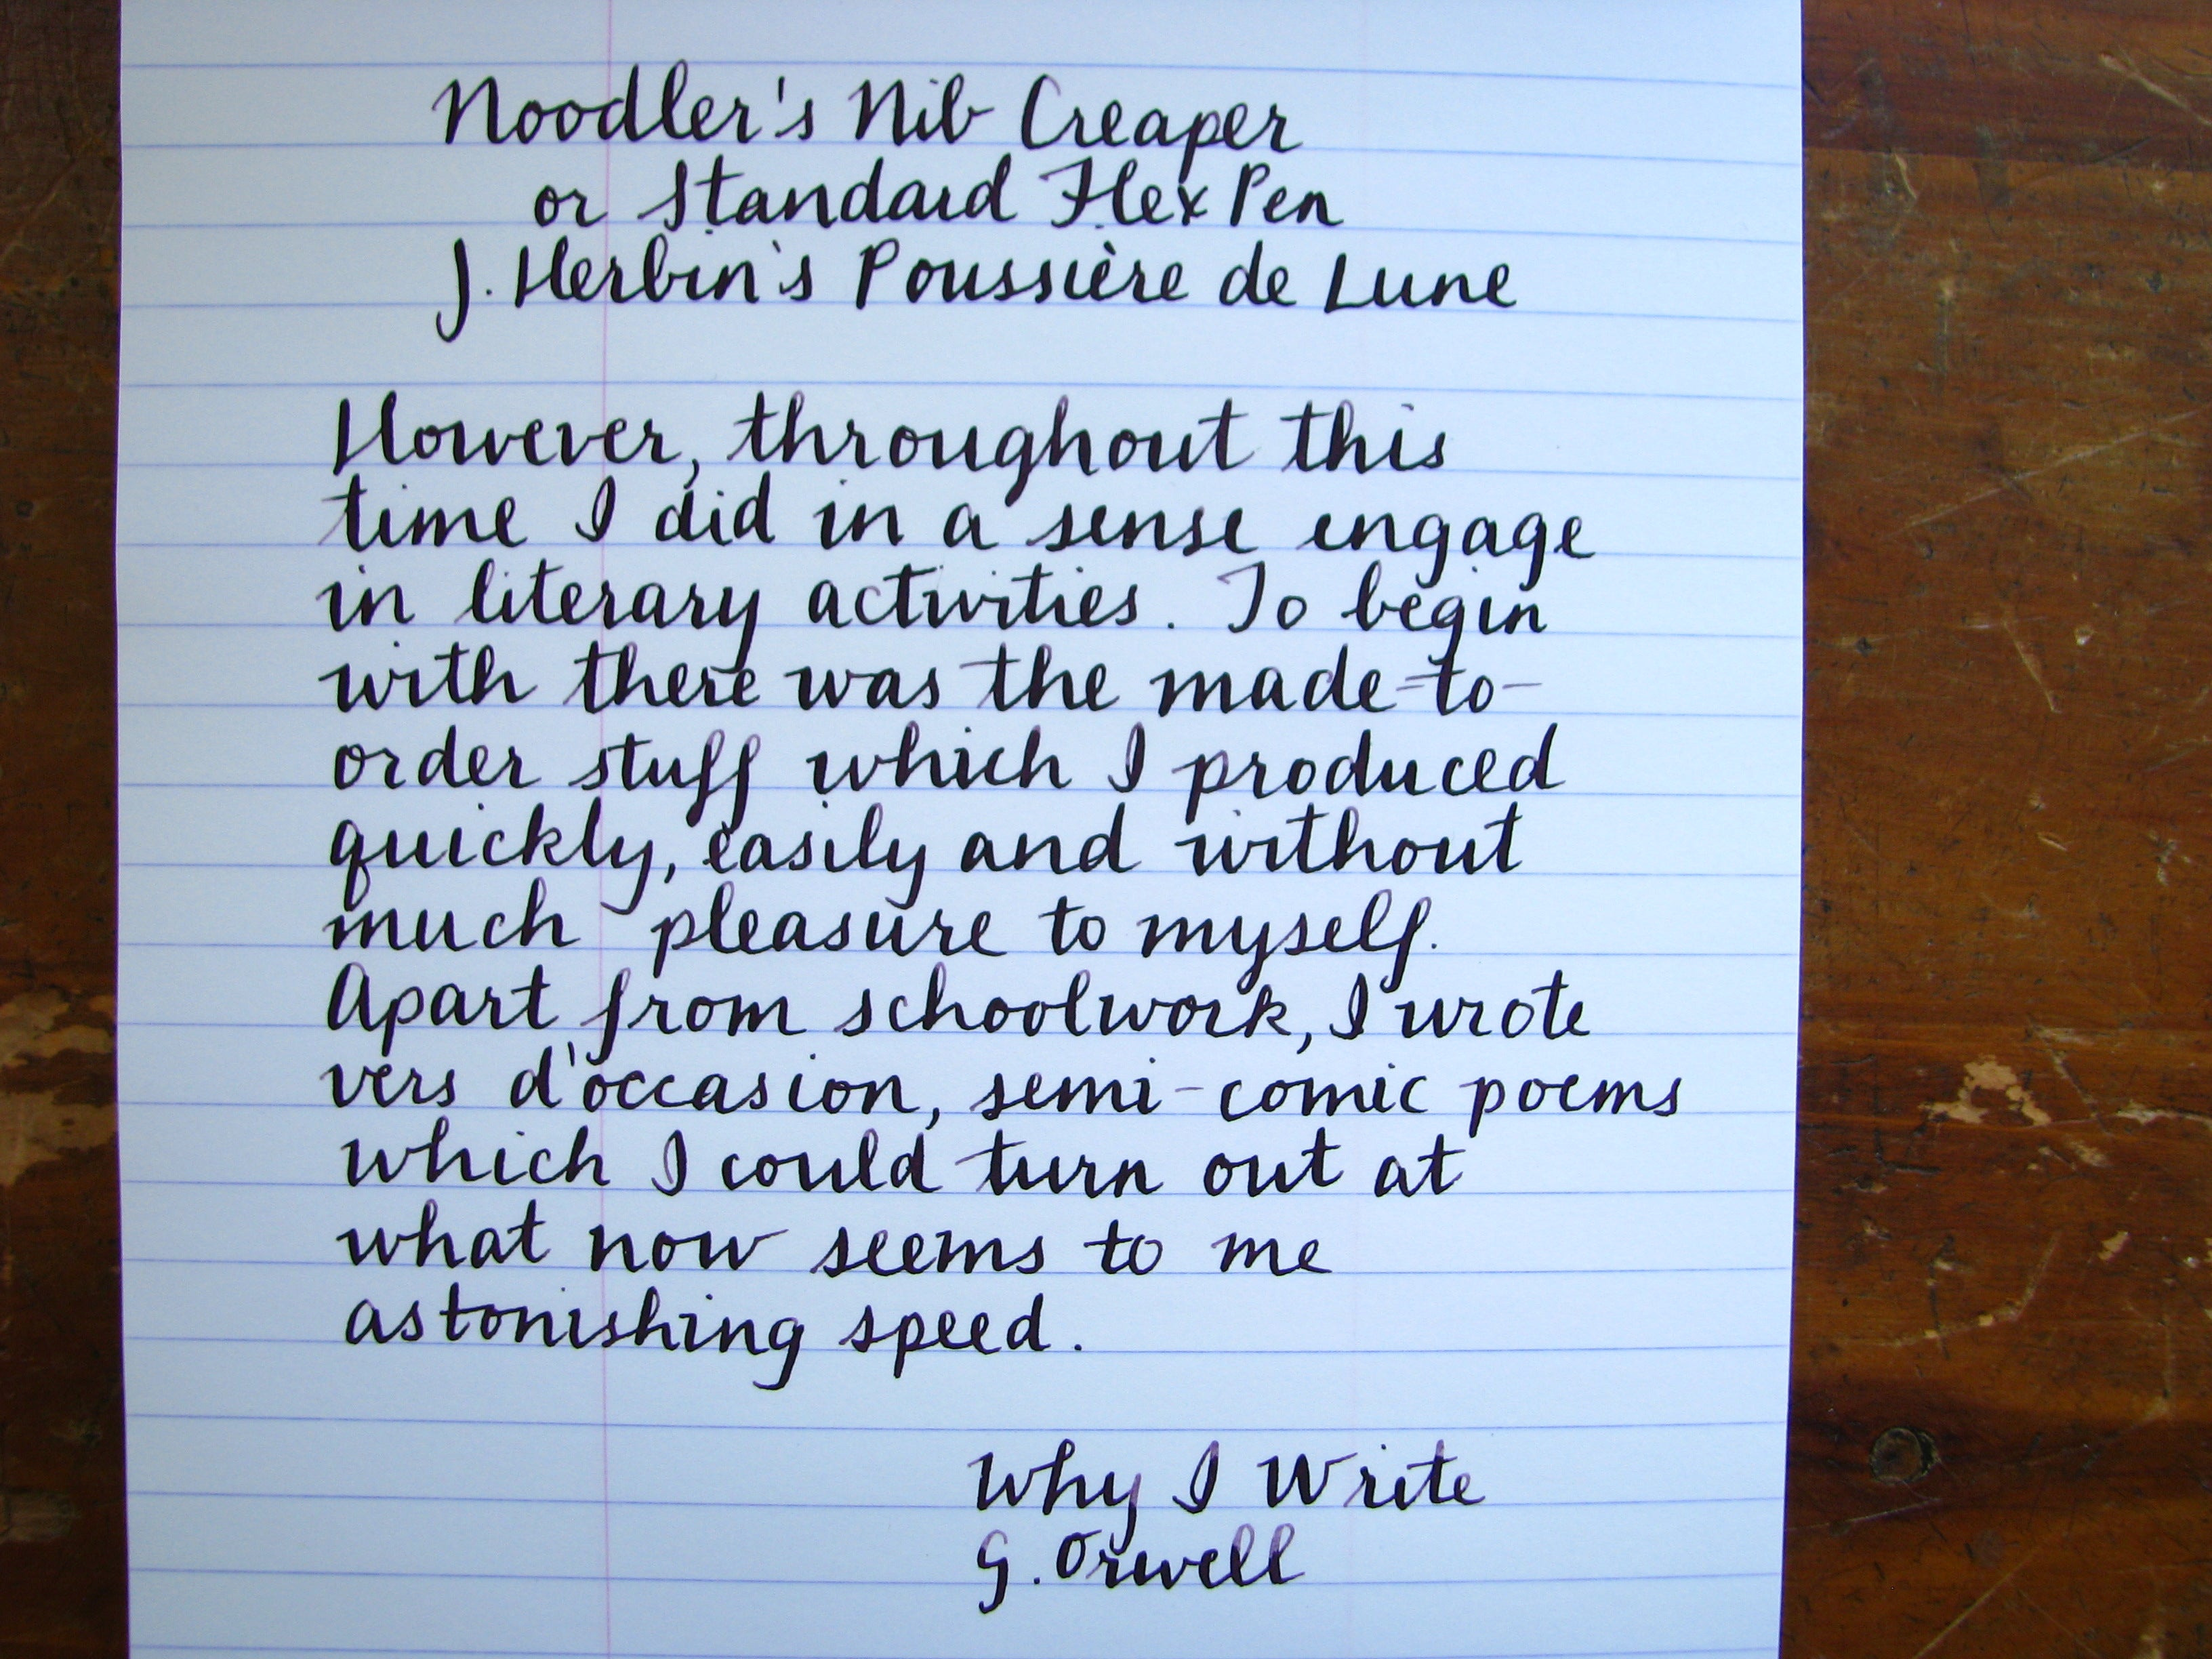 Noodler's Nib Creaper
or Standard Flex Pen
J. Herbin's Poussière de Lune
However, throughout this
time I did in a sense engage
in literary activities. To begin
with there was the made-to-
order stuff which I produced
quickly, easily and without
much pleasure to myself.
Apart from schoolwork, I wrote
vers d'occasion, semi-comic poems
which I could turn out at
what now seems to me
astonishing speed.
Why I Write
G. Orwell